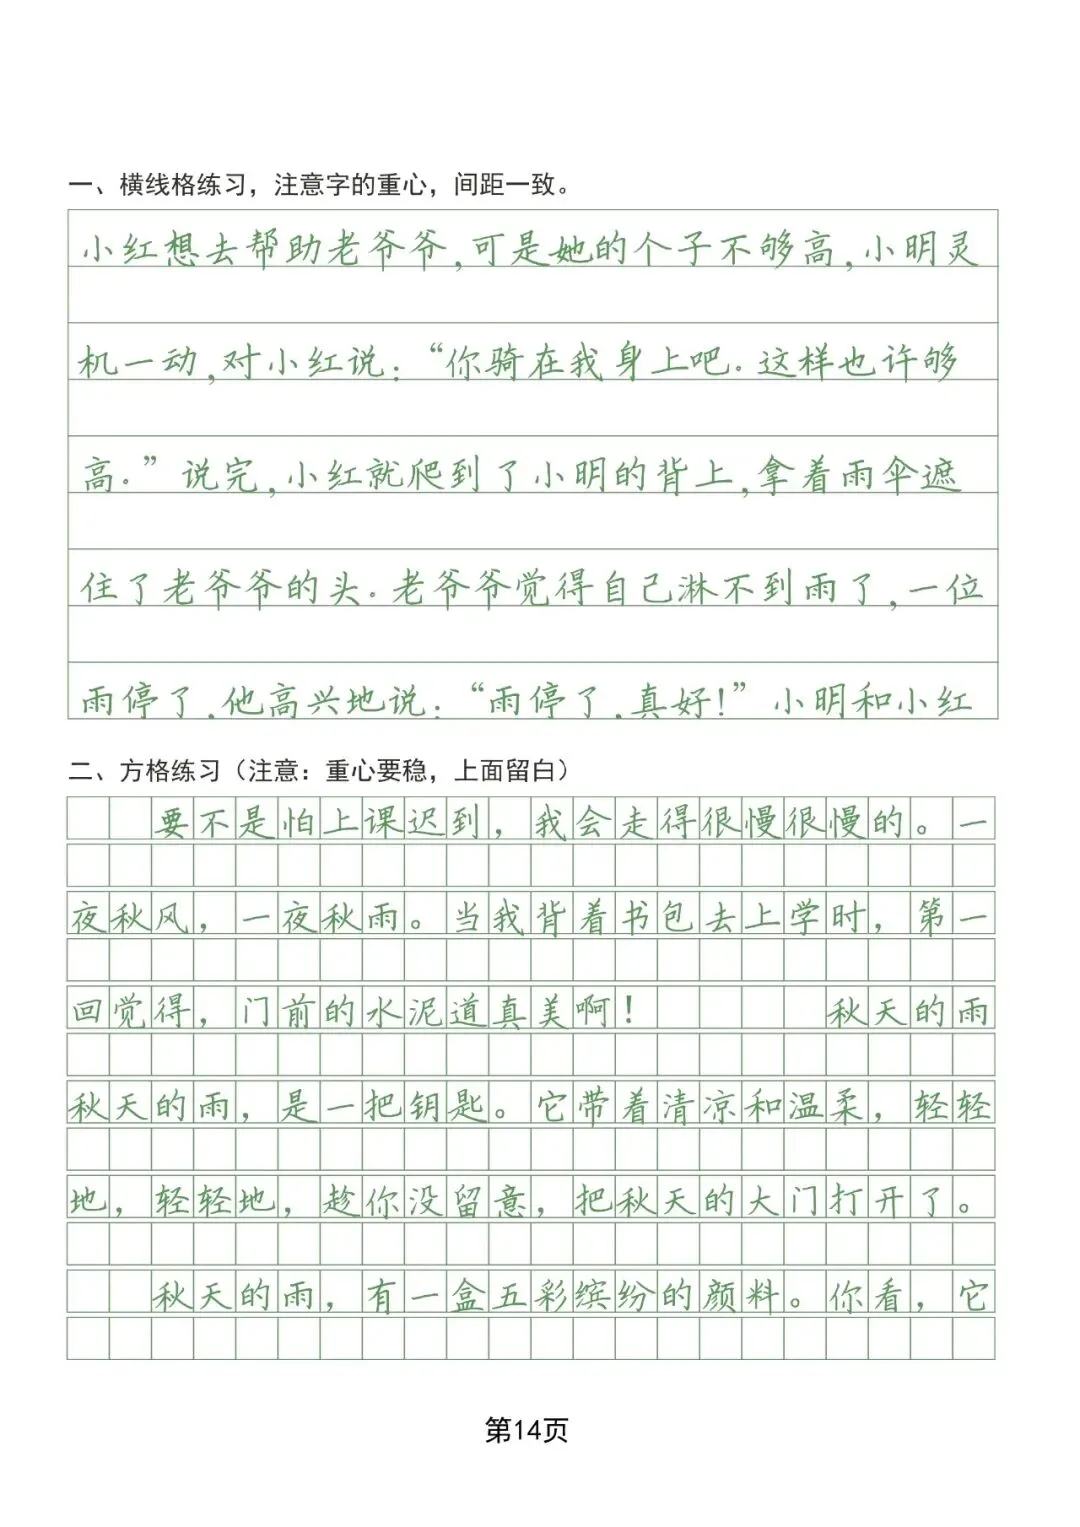 一、横线格练习，注意字的重心，间距一致。
小红想去帮助老爷爷,可是她的个子不够高,小明灵
机一动,对小红说：“你骑在我身上吧.这样也许够
高.”说完,小红就爬到了小明的背上,拿着雨伞遮
住了老爷爷的头.老爷爷觉得自己淋不到雨了,一位
雨停了,他高兴地说：“雨停了,真好!”小明和小红
二、方格练习（注意：重心要稳，上面留白）
要不是怕上课迟到，我会走得很慢很慢的。一
夜秋风，一夜秋雨。当我背着书包去上学时，第一
回觉得，门前的水泥道真美啊！ 秋天的雨
秋天的雨，是一把钥匙。它带着清凉和温柔，轻轻
地，轻轻地，趁你没留意，把秋天的大门打开了。
秋天的雨，有一盒五彩缤纷的颜料。你看，它
第14页